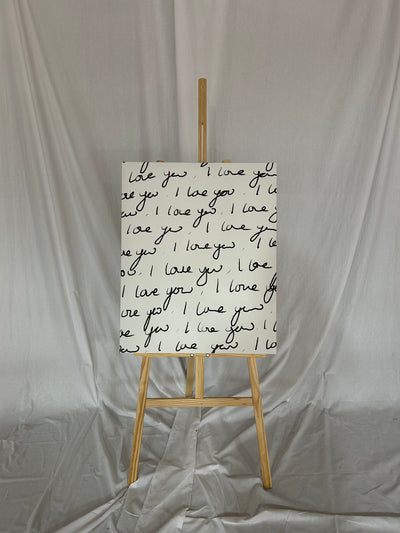 love you, I love you
love you, I love you, I lo
you, I love you, I love
love you, I love you,
ve you, I love you, I lo
you, I love you, I love
I love you, I love you
ove you, I love you,
ve you, I love you, I l
you, I love you, I lo